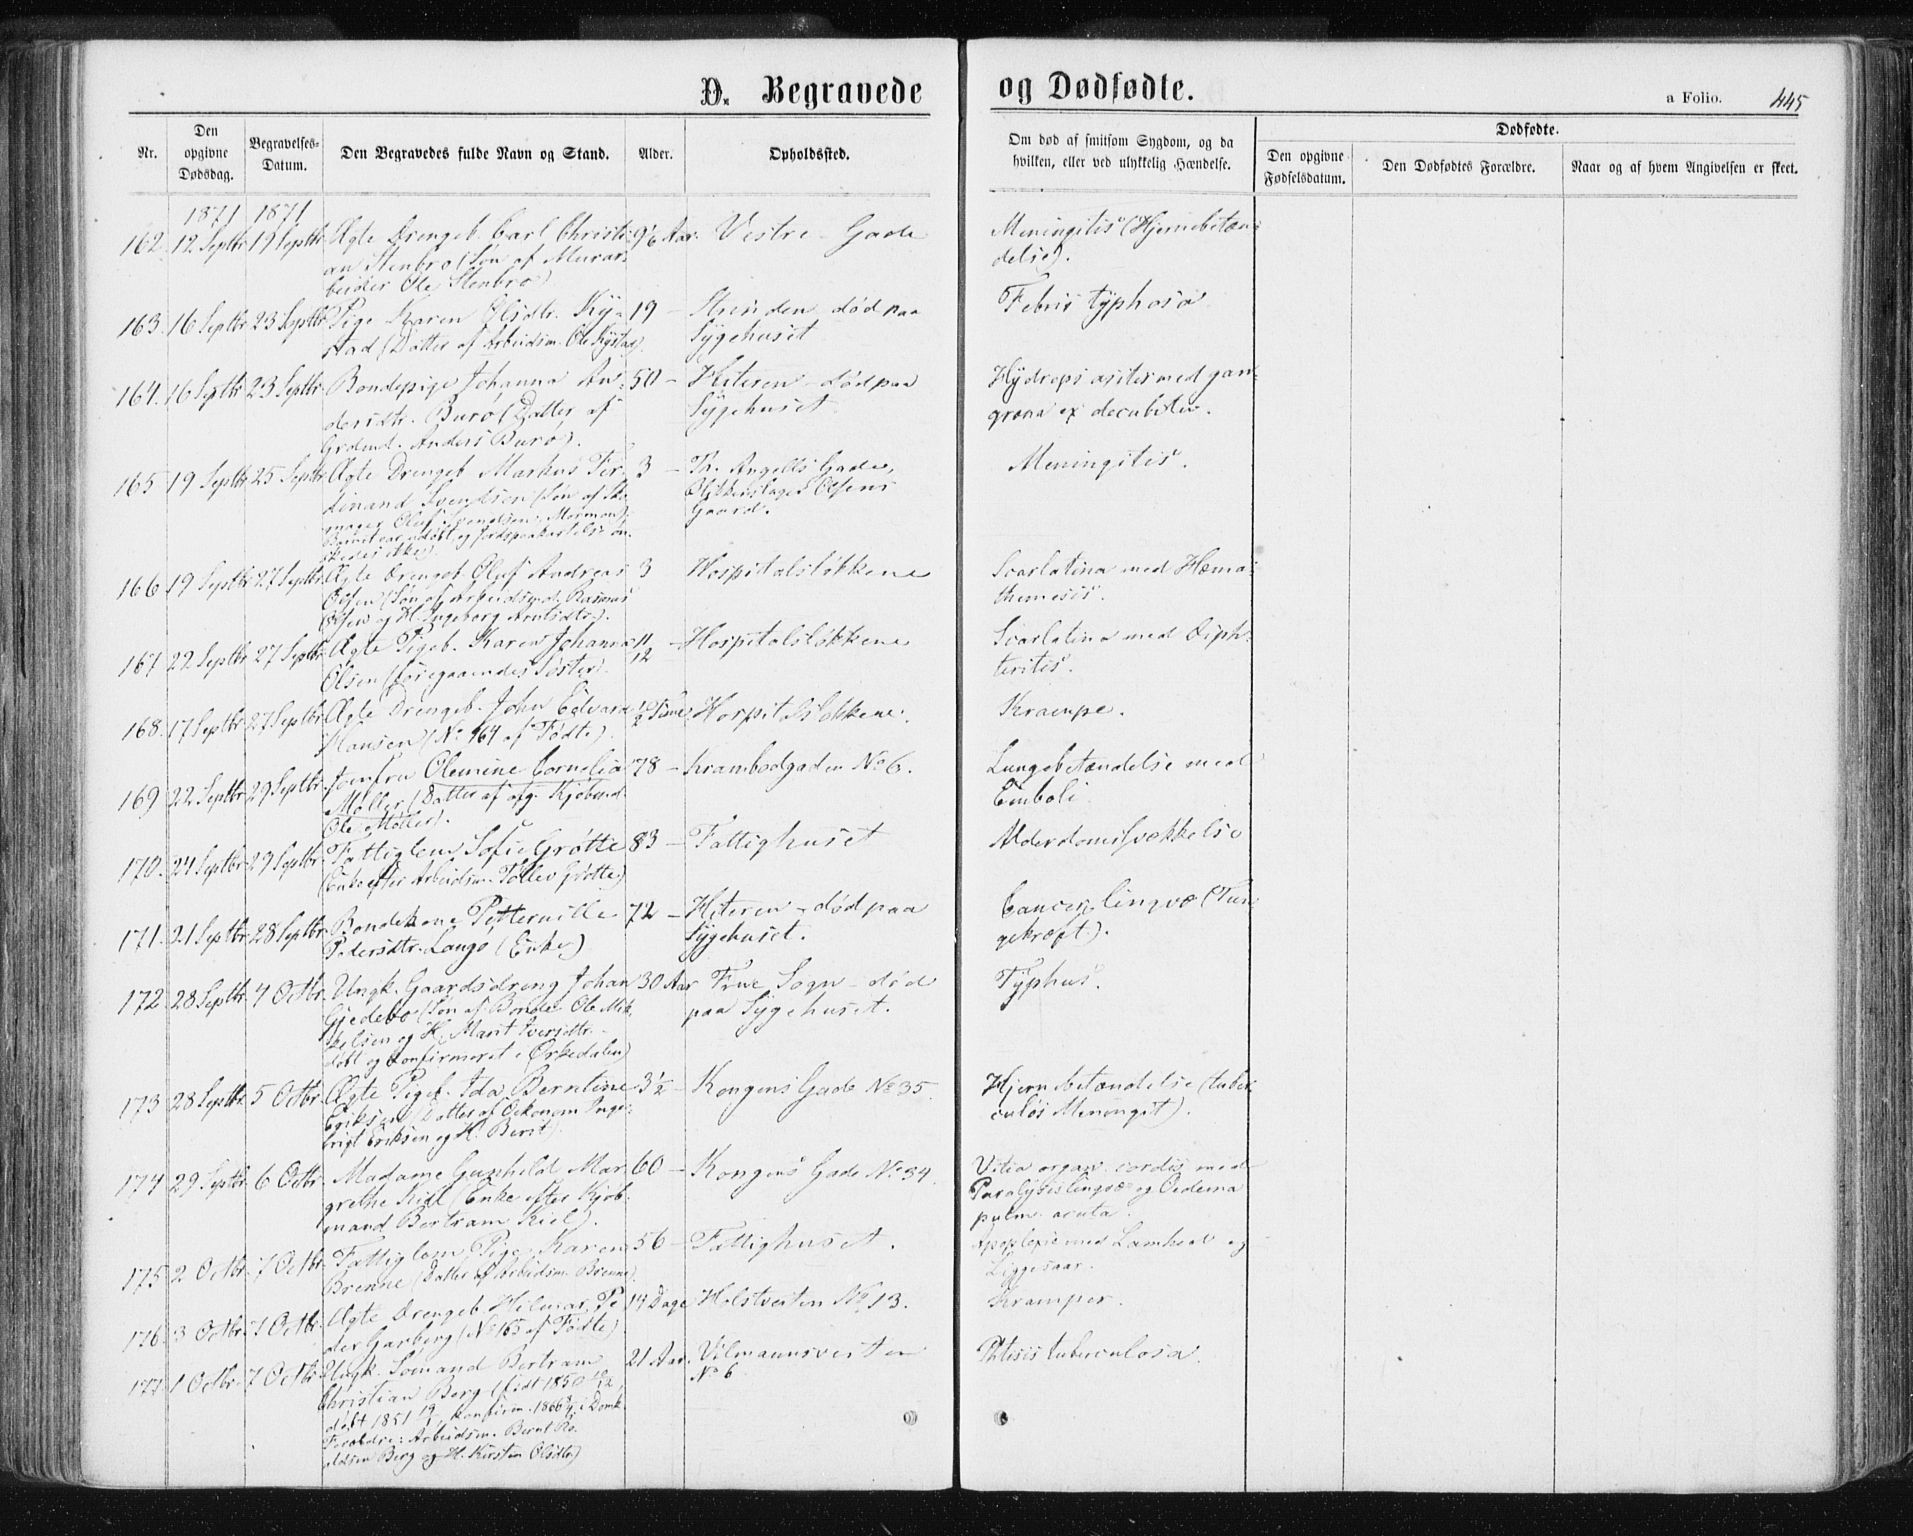 D. Begravede og Dødfødte.
a Folio. 445
Nr.
Den opgivne Dødsdag.
Begravelses-Datum.
Den Begravedes fulde Navn og Stand.
Alder.
Opholdssted.
Om død af smitsom Sygdom, og da hvilken, eller ved ulykkelig Hændelse.
Dødfødte.
Den opgivne Fødselsdatum.
Den Dødfødtes Forældre.
Naar og af hvem Angivelsen er skeet.
1871 1871
162. 12 Septbr 19 Septbr Ægte Drengeb. Carl Christi- Aar. Vestre Gade Meningitis (Hjernebetæn-
an Stenbro (Søn af Murar- delse).
beider Ole Stenbro)
163. 16 Septbr 23 Septbr Pige Karen Olsdtr. Ky- 19 – Strinden død paa Febris typhosa
stad (Datter af Arbeidsm. Ole Kystad) Sygehuset
164. 16 Septbr 23 Septbr Bondepige Johanna An- 50 – Hiteren – død paa Hydrops asites med gan-
dersdtr. Burø (Datter af Sygehuset. græna ex decubitu.
Grdmd. Anders Burø).
165 19 Septbr 25 Septbr Ægte Drengeb. Markus Fer- 3 – Th. Angells Gade, Meningitis.
dinand Svendsen (Søn af Sko- Blikkenslager Olsens
mager Oluf Svendsen, Mormon) Gaard.
Barnet var udøbt og Jordspaakastelse øn-
skedes ikke).
166 19 Septbr 27 Septbr Ægte Drengeb. Oluf Andreas 3 Hospitalsløkkene Scarlatina med Hæma-
Olsen (Søn af Arbeidsmd. Rasmus themesis.
Olsen og H. Ingeborg Arntsdtr).
167 22 Septbr 27 Septbr Ægte Pigeb. Karen Johanna 11/12 – Hospitalsløkkene Scarlatina med Diph-
Olsen (foregaaendes Søster). teritis.
168. 17 Septbr 27 Septbr Ægte Drengeb. John Edvard 1/2 Time Hospitalsløkkene. Krampe.
Hansen (No 164 af Fødte).
169 22 Septbr 29 Septbr Jomfru Olemine Cornelia 78 – Krambodgaden No 6. Lungebetændelse med
Møller (Datter af afg. Kjøbmd. Emboli
Ole Møller).
170. 24 Septbr 29 Septbr Fattiglem Sofie Grøtte 83 – Fattighuset Alderdomssvækkelse
(Enke efter Arbeidsm. Tollev Grøtte)
171. 21 Septbr 28 Septbr Bondekone Petternille 72 – Hiteren – død paa Cancer lingvæ (Tun-
Pedersdtr. Langø (Enke) Sygehuset. gekræft).
172. 28 Septbr 4 Octbr. Ungk. Gaardsdreng Johan 30 Aar Sogn – død Typhus.
Gjedebo (Søn af Bonde Ole Mik- paa Sygehuset.
kelsen og H. Marit Iversdtr.
døbt og konfirmeret i Ørkedalen)
173 28 Septbr 5 Octbr. Ægte Pigeb. Ida Berntine 3 1/2 – Kongens Gade No 35. Hjernebetændelse (tuber-
Eriksen (Datter af Oekonom Inge- culøs Meningit).
brigt Eriksen og H. Berit).
174 29 Septbr 6 Octbr. Madame Gunhild Mar- 60 – Kongens Gade No 34. Vitia organ. cordis med
grethe Kiel (Enke efter Kjøb- Paralysis lingvæ og Oedema
mand Bertram Kiel). pulm. acuta.
175 2 Octbr. 7 Octbr. Fattiglem Pige Karen 56 – Fattighuset. Apoplexie med Lamhed og
Brenne (Datter af Arbeidsm. Brenne). Liggesaar.
176. 3 Octbr. 7 Octbr. Ægte Drengeb. Hilmar Pe- 14 Dage Holstveiten No 13. Kramper.
der Garberg (No 165 af Fødte).
177. 1 Octbr. 7 Octbr Ungk. Sømand Bertram 21 Aar. Vilmannsveiten Phtisis tuberculosa.
Christian Berg (født 1850 No 6
døbt 1851, konfirm. 1866 i Domk.
Forældre: Arbeidsm. Bernt
Berg og H. Kirsten Olsdtr)